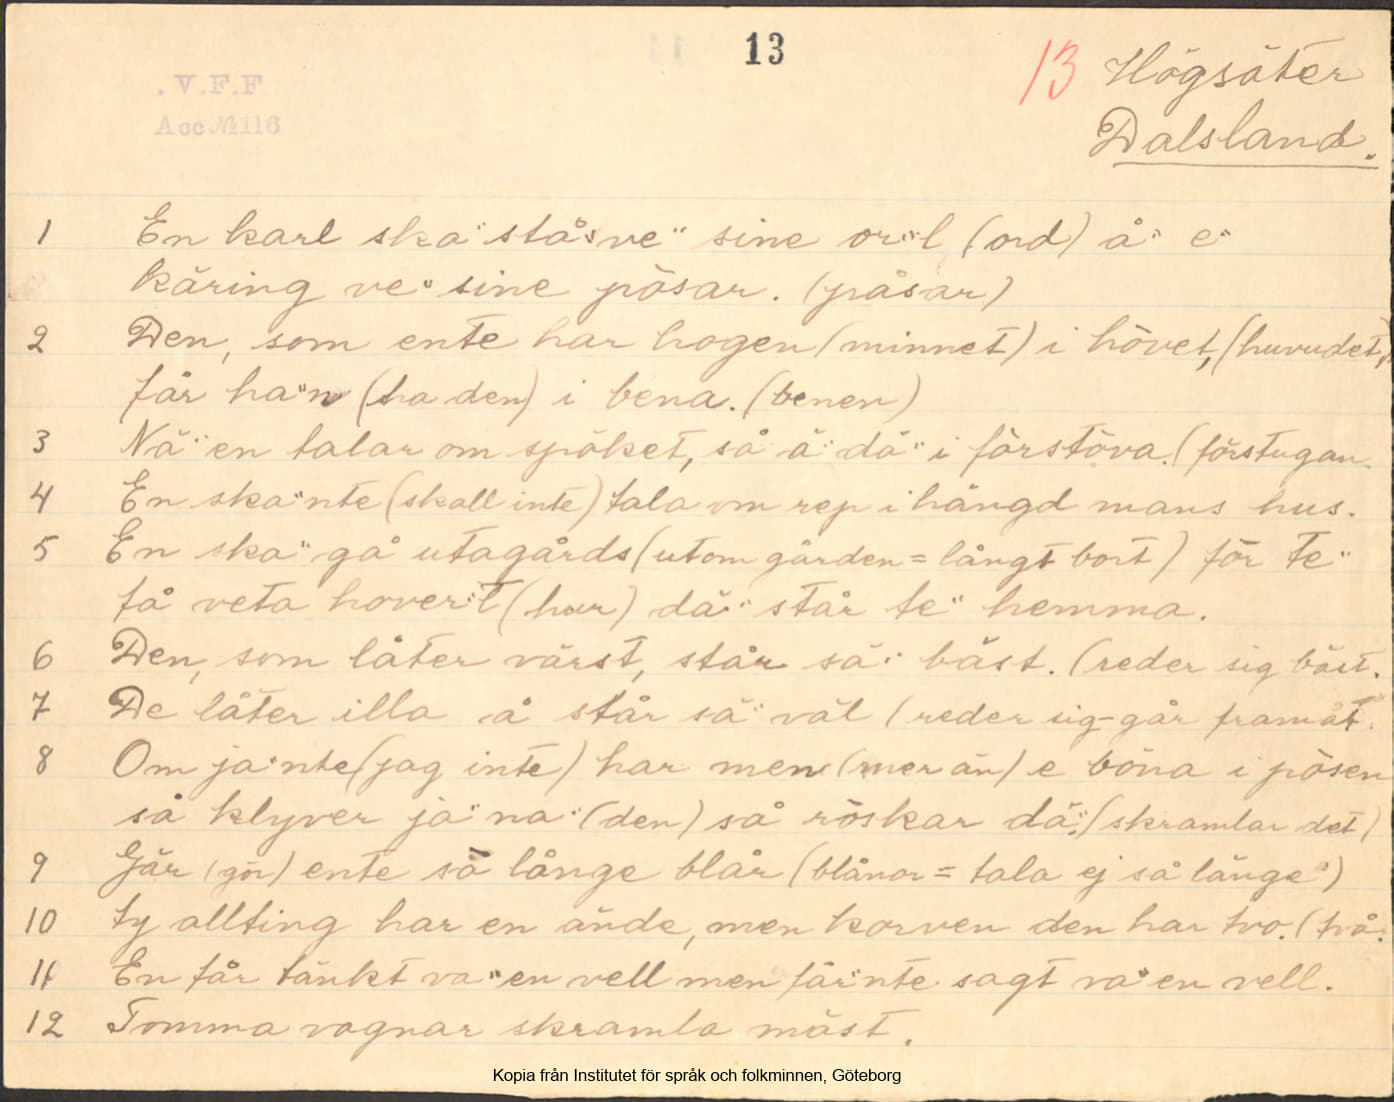 13
13 Högsäter
Dalsland.
V.F.F
Acc № 116
1 En karl ska" stå" ve" sine or"l (ord) å" e"
käring ve" sine pösar. (påsar)
2 Den, som ente har hogen (minnet) i hövet, (huvudet,)
får ha"n (ha den) i bena. (benen)
3 Nä" en talar om spöket, så ä" dä" i förstöva. (förstugan.
4 En ska"nte (skall inte) tala om rep i hängd mans hus.
5 En ska" gå utagårds (utom gården = långt bort) för te"
få veta hover"t (hur) dä" står te" hemma.
6 Den, som låter värst, står sä" bäst. (reder sig bäst.
7 De låter illa å står sä" väl (reder sig - går framåt.
8 Om ja"nte (jag inte) har men (mer än) e böna i pösen
så klyver ja" na" (den) så röskar dä". (skramlar det)
9 Gär (gör) ente så långe blår (blånor = tala ej så länge")
10 ty allting har en ände, men korven den har tvo. (två.
11 En får tänkt va" en vell men får"nte sagt va" en vell.
12 Tomma vagnar skramla mäst.
Kopia från Institutet för språk och folkminnen, Göteborg